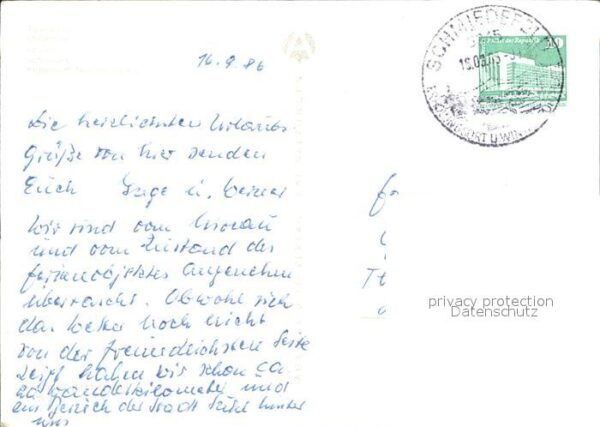 16.9.86
Die herzlichsten Urlaubs
Grüße von hier senden
Euch Inge u. Werner
Wir sind vom Niveau
und vom Zustand des
Ferienobjektes angenehm
überrascht. Obwohl sich
das Wetter noch nicht
von der freundlichsten Seite
zeigt haben wir schon ca
Wanderkilometer und
im Bereich der Stadt Suhl hinter
uns
SCHMIEDEFELD
Palast der Republik
privacy protection
Datenschutz